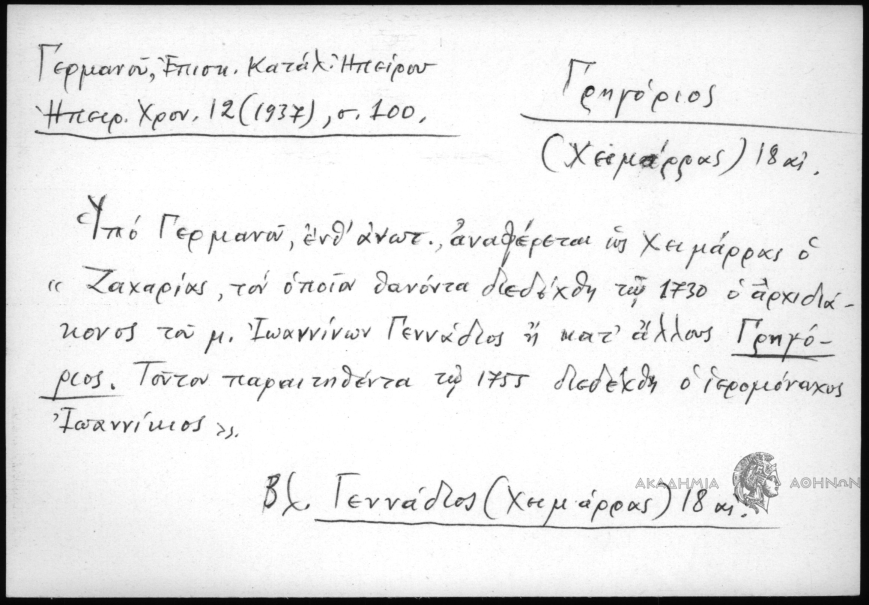 Γερμανοῦ, Ἐπισκ. Κατάλ. Ἠπείρου
Ἠπειρ. Χρον. 12 (1937), σ. 100.
Γρηγόριος
(Χειμάρρας) 18 αἰ.
Ὑπό Γερμανοῦ, ἐνθ' ἀνωτ., ἀναφέρεται ὡς Χειμάρρας ὁ
« Ζαχαρίας, τόν ὁποῖον θανόντα διεδέχθη τῷ 1730 ὁ ἀρχιδιά-
κονος τοῦ μ. Ἰωαννίνων Γεννάδιος ἤ κατ' ἄλλους Γρηγό-
ριος. Τοῦτον παραιτηθέντα τῷ 1755 διεδέχθη ὁ ἱερομόναχος
Ἰωαννίκιος ».
Βλ. Γεννάδιος (Χειμάρρας) 18 αἰ.
ΑΚΑΔΗΜΙΑ ΑΘΗΝΩΝ